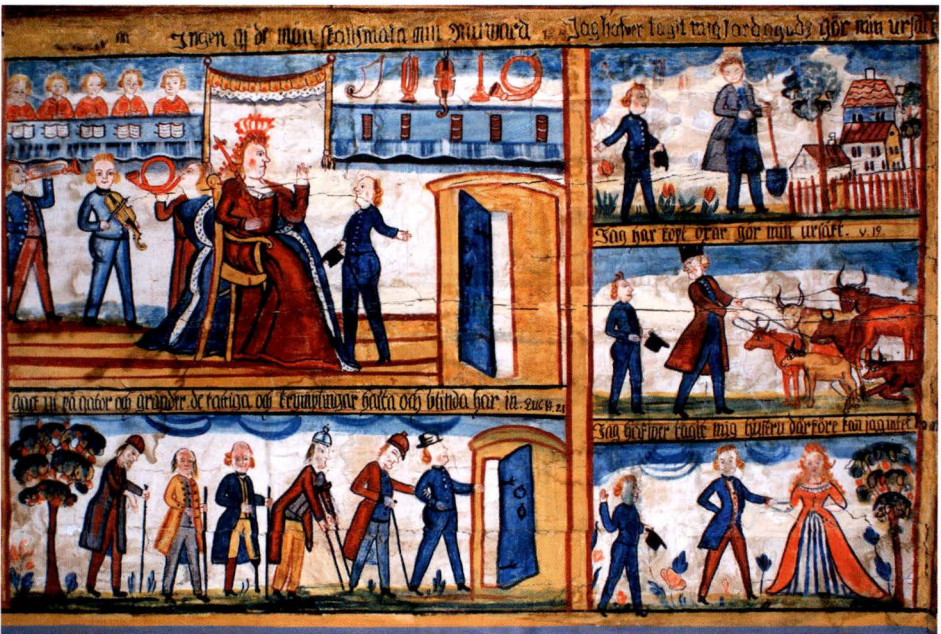 Ingen af de män skall smaka min Nattward
Jag hafwer tagit mig jordagods gör min ursäkt
Jag har köpt oxar. gör min ursäkt. v. 19.
gack ut på gator och gränder de fattiga och krymplingar halta och blinda har in. Luc 14. 21
Jag hafwer tagit mig hustru därföre kan jag intet